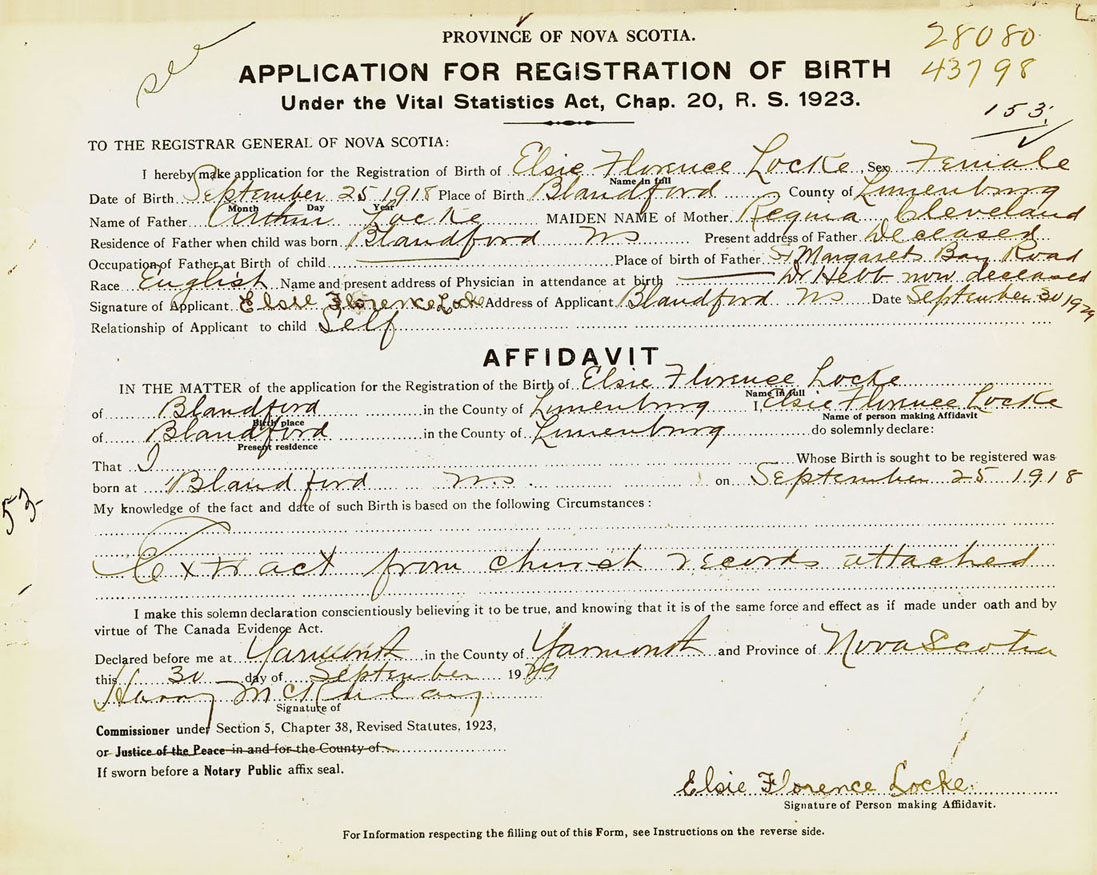 PROVINCE OF NOVA SCOTIA.
28080
43798
see
APPLICATION FOR REGISTRATION OF BIRTH
Under the Vital Statistics Act, Chap. 20, R. S. 1923.
153.
TO THE REGISTRAR GENERAL OF NOVA SCOTIA:
I hereby make application for the Registration of Birth of Elsie Florence Locke Sex Female
Name in full
Date of Birth September 25 1918 Place of Birth Blandford County of Lunenburg
Month Day Year
Name of Father Arthur Locke MAIDEN NAME of Mother Regina Cleveland
Residence of Father when child was born Blandford NS Present address of Father Deceased
Occupation of Father at Birth of child Place of birth of Father St Margarets Bay Road
Race English Name and present address of Physician in attendance at birth Dr Hebb now deceased
Signature of Applicant Elsie Florence Locke Address of Applicant Blandford NS Date September 30 1929
Relationship of Applicant to child Self
AFFIDAVIT
IN THE MATTER of the application for the Registration of the Birth of Elsie Florence Locke
Name in full
of Blandford in the County of Lunenburg I, Elsie Florence Locke
Birth place Name of person making Affidavit
of Blandford in the County of Lunenburg do solemnly declare:
Present residence
That I Whose Birth is sought to be registered was
born at Blandford N.S. on September 25 1918
53
My knowledge of the fact and date of such Birth is based on the following Circumstances:
Extract from church records attached
I make this solemn declaration conscientiously believing it to be true, and knowing that it is of the same force and effect as if made under oath and by
virtue of The Canada Evidence Act.
Declared before me at Yarmouth in the County of Yarmouth and Province of Nova Scotia
this 30 day of September 19
Harry
Signature of
Commissioner under Section 5, Chapter 38, Revised Statutes, 1923,
or Justice of the Peace in and for the County of
If sworn before a Notary Public affix seal.
Elsie Florence Locke
Signature of Person making Affidavit.
For Information respecting the filling out of this Form, see Instructions on the reverse side.